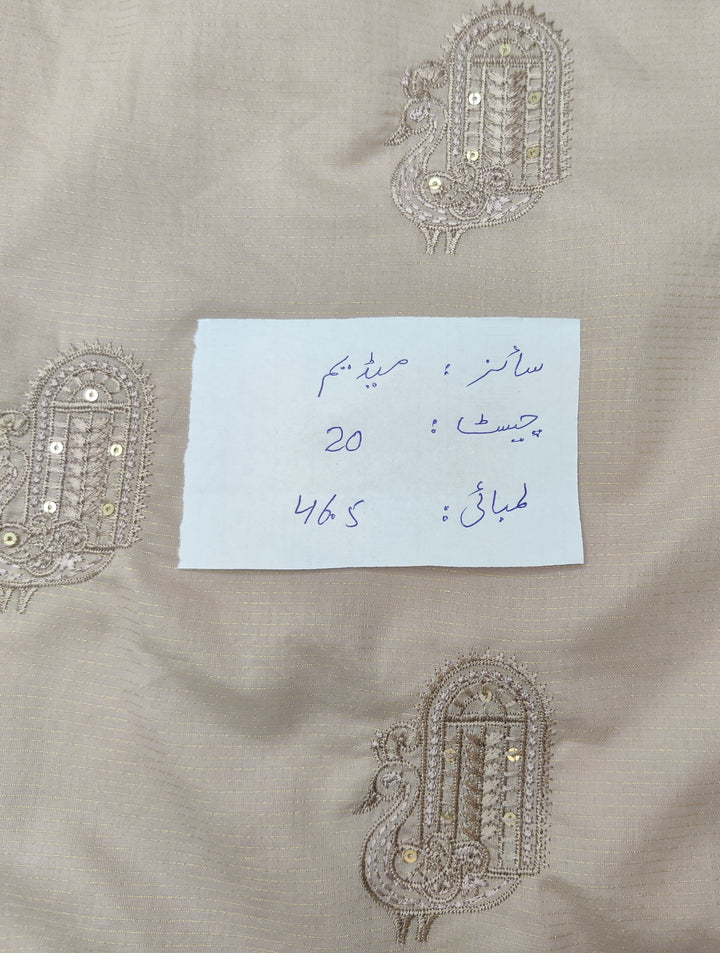 سائز : میڈیم
چیسٹ : 20
لمبائی : 46.5